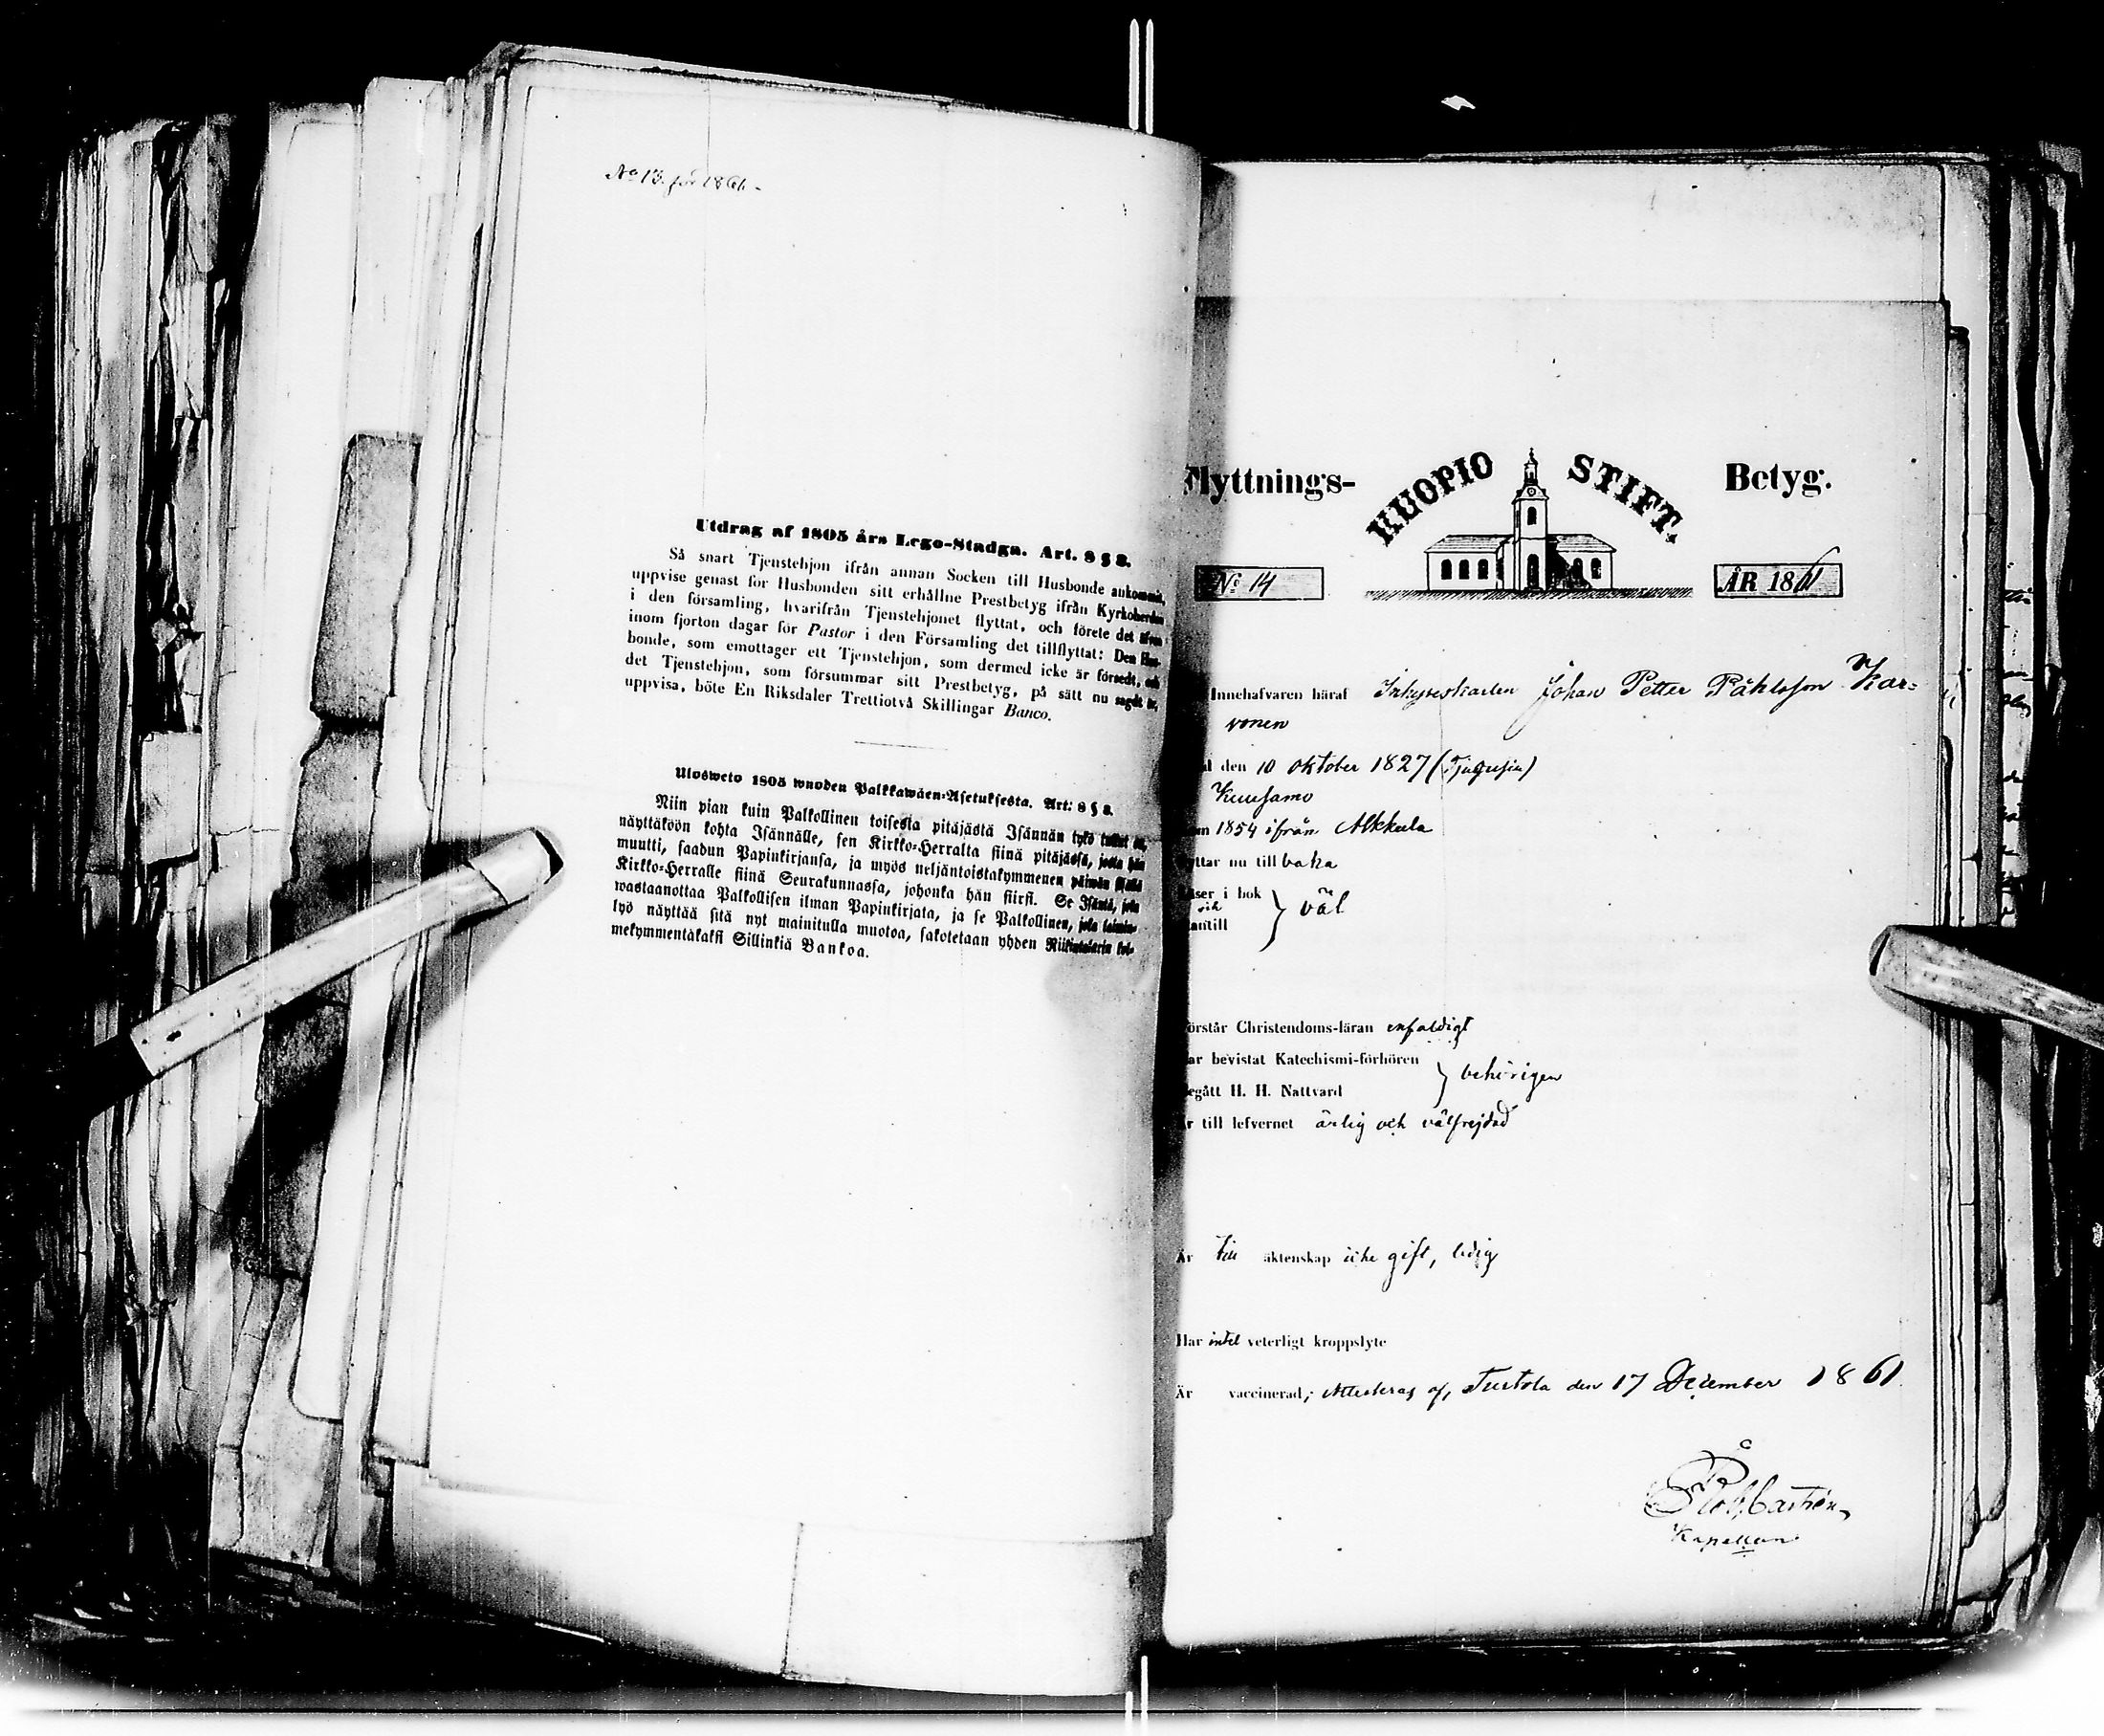 No 13. för 1861.
Utdrag af 1805 års Lego-Stadga. Art. 8 § 8.
Så snart Tjenstehjon ifrån annan Socken till Husbonde ankommit,
uppvise genast för Husbonden sitt erhållne Prestbetyg ifrån Kyrkoherden
i den församling, hvarifrån Tjenstehjonet flyttat, och förete det äfven
inom fjorton dagar för Pastor i den Församling det tillflyttat: Den Hus-
bonde, som emottager ett Tjenstehjon, som dermed icke är försedt, och
det Tjenstehjon, som försummar sitt Prestbetyg, på sätt nu sagdt är,
uppvisa, böte En Riksdaler Trettiotvå Skillingar Banco.
Ulosweto 1805 wuoden Palkkawäen-Asetuksesta. Art: 8 § 8.
Niin pian kuin Palkollinen toisesta pitäjästä Isännän tykö tullut on,
näyttäköön kohta Isännälle, sen Kirkko-Herralta siinä pitäjässä, josta hän
muutti, saadun Papinkirjansa, ja myös neljäntoistakymmenen päiwän sisällä
Kirkko-Herralle siinä Seurakunnassa, johonka hän siirsi. Se Isäntä, joka
wastaanottaa Palkollisen ilman Papinkirjata, ja se Palkollinen, joka laimin-
lyö näyttää sitä nyt mainitulla muotoa, sakotetaan yhden Riikintalarin kol-
mekymmentäkaksi Sillinkiä Bankoa.
Flyttnings- KUOPIO STIFT. Betyg.
No 14 ÅR 1861
Innehafvaren häraf Johan Petter Påhlsson Kar-
vonen
den 10 oktober 1827 (Tjugusju)
Kuusamo
1854 ifrån Alkkula
flyttar nu till baka
Läser i bok
väl
utantill
Förstår Christendoms-läran enfaldigt
Har bevistat Katechismi-förhören
behörigen
Begått H. H. Nattvard
Är till lefvernet ärlig och välfrejdad
Är till äktenskap icke gift, ledig
Har intet veterligt kroppslyte
Är vaccinerad, Attesteras af, Turtola den 17 December 1861
Castrén
Kapellan